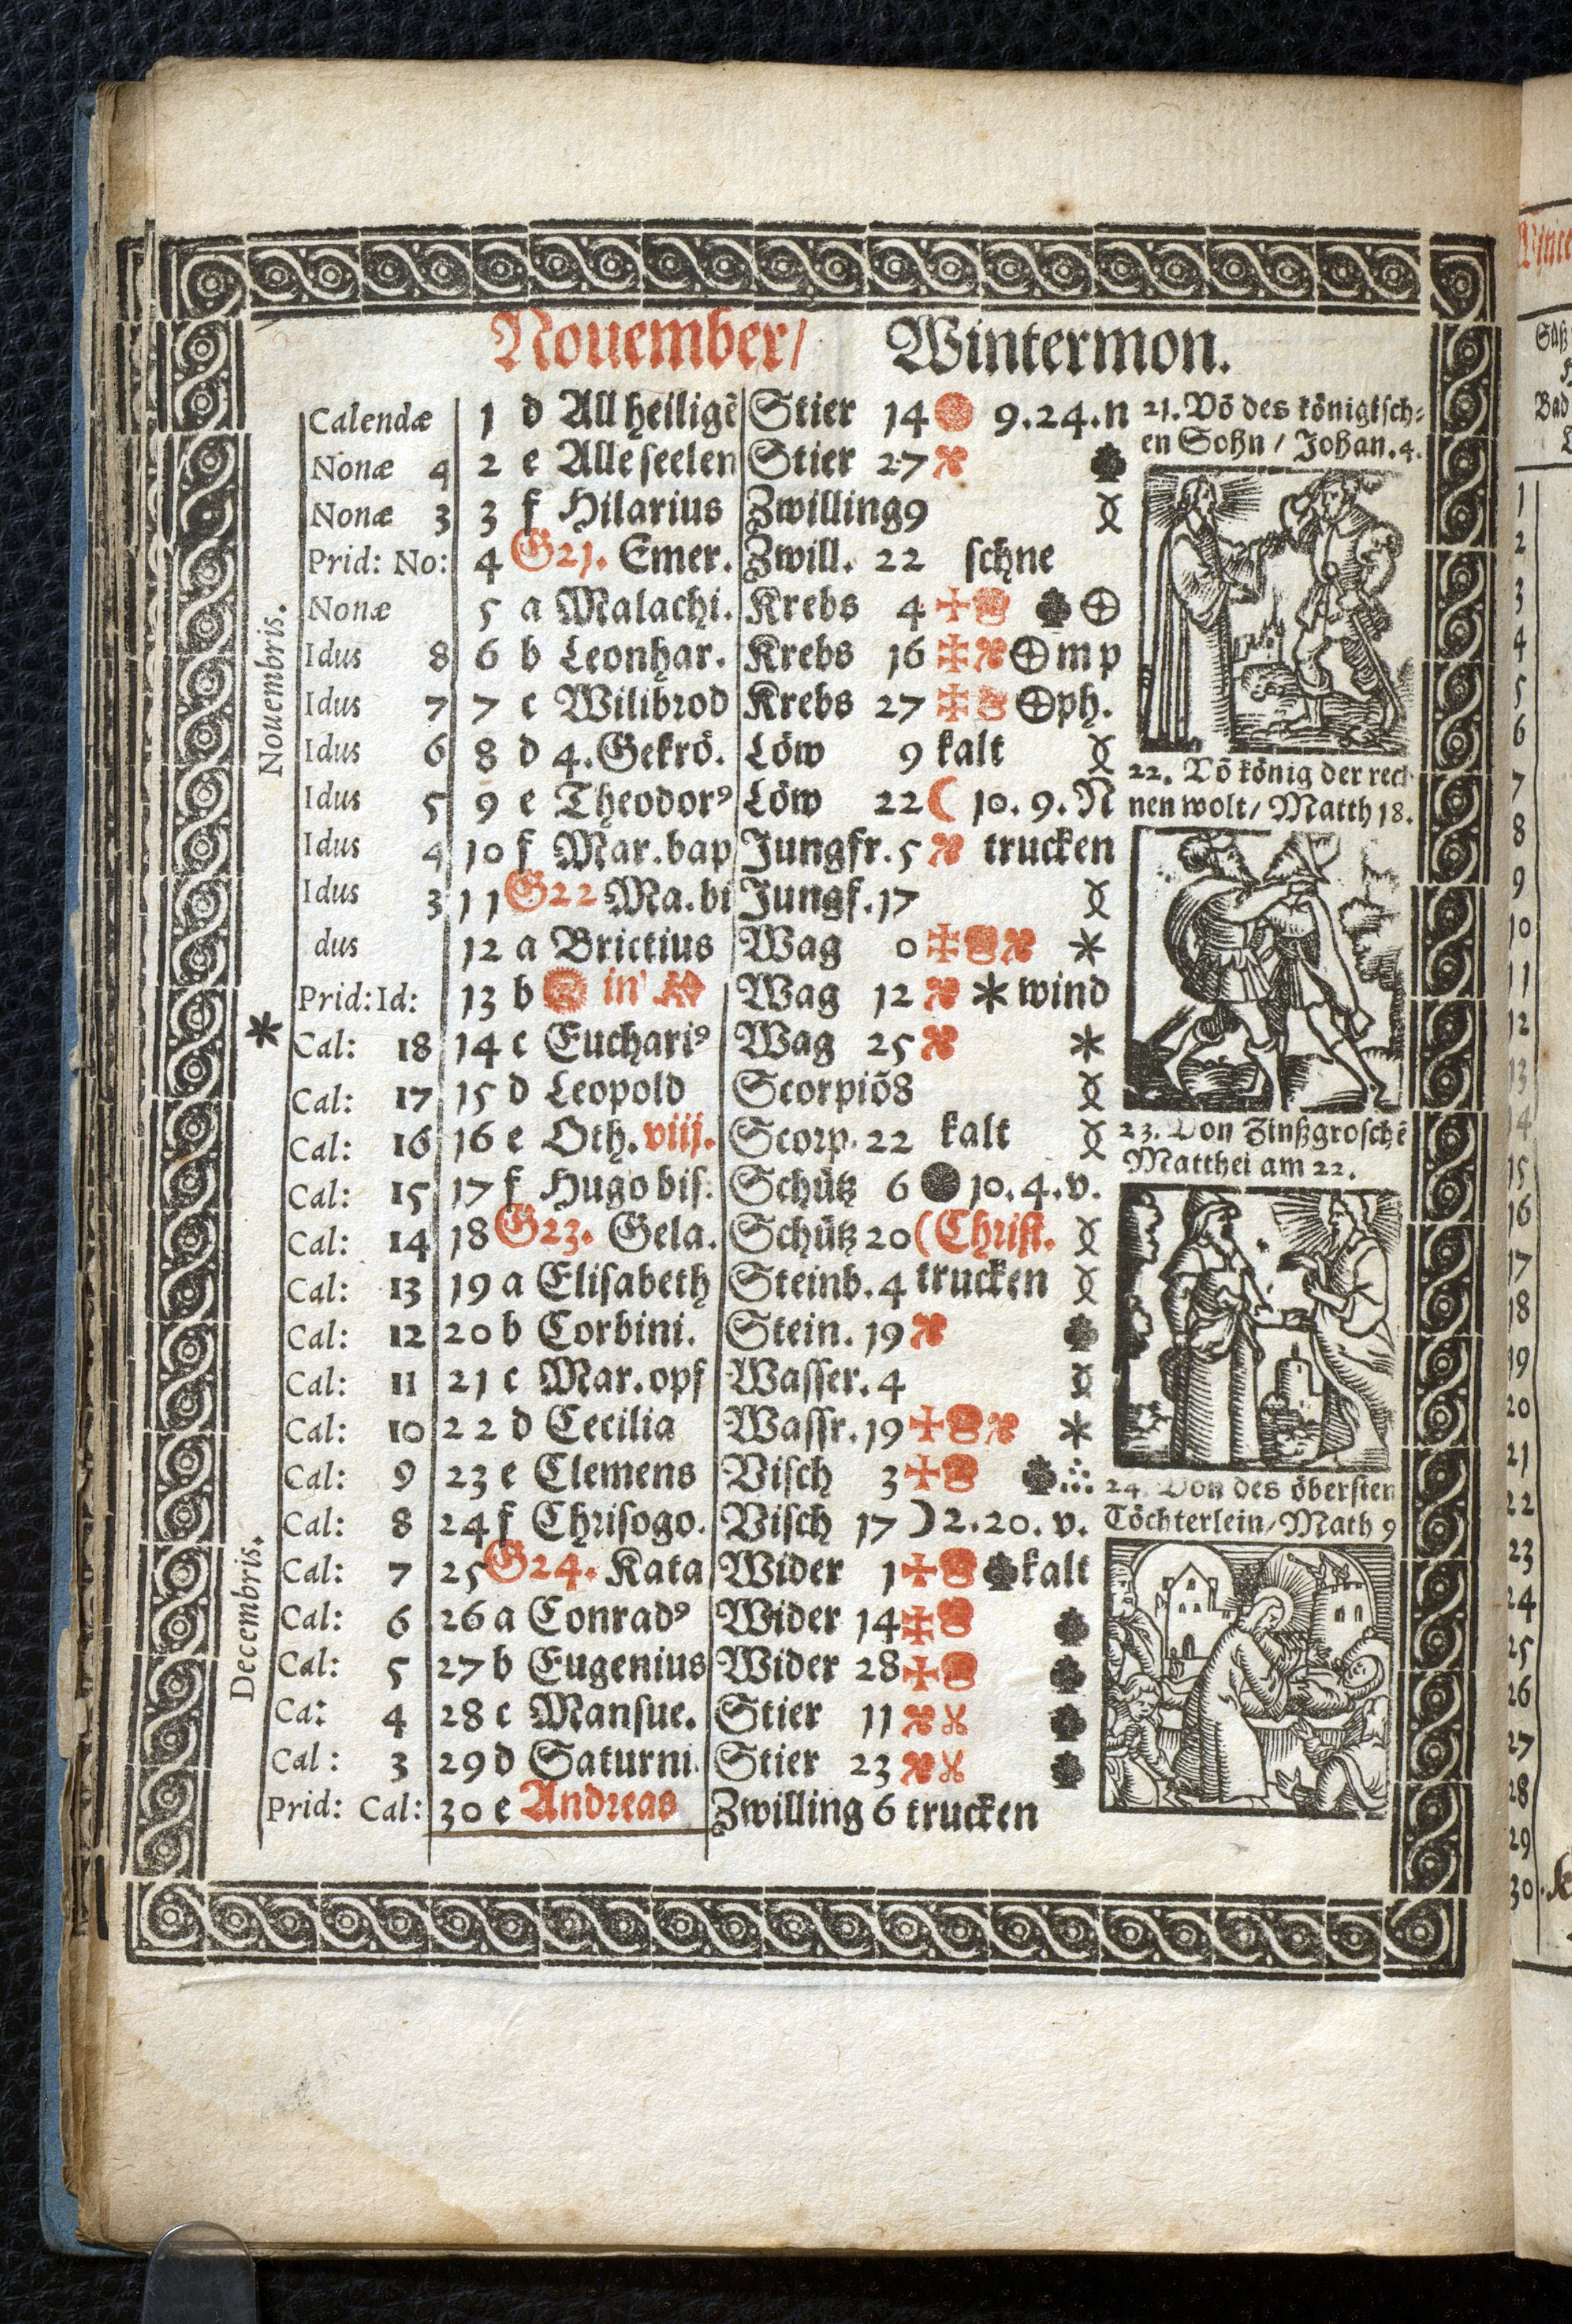 Nouember/ Wintermon.
Nouembris.
Calendæ 1 d All heiligē Stier 14 9.24.n
Nonæ 4 2 e Alle seelen Stier 27
Nonæ 3 3 f Hilarius Zwilling 9
Prid: No: 4 G21. Emer. Zwill. 22 schne
Nonæ 5 a Malachi. Krebs 4
Idus 8 6 b Leonhar. Krebs 16 m p
Idus 7 7 c Wilibrod Krebs 27 ph.
Idus 6 8 d 4.Gekrö. Löw 9 kalt
Idus 5 9 e Theodorꝰ Löw 22 10. 9. N
Idus 4 10 f Mar.bap Jungfr. 5 trucken
Idus 3 11 G22 Ma.bi Jungf. 17
dus 12 a Brictius Wag 0
Prid:Id: 13 b in Wag 12 wind
Cal: 18 14 c Euchariꝰ Wag 25
Cal: 17 15 d Leopold Scorpiō 8
Cal: 16 16 e Oth. viij. Scorp. 22 kalt
Cal: 15 17 f Hugo bis. Schütz 6 10.4.v.
Cal: 14 18 G23. Gela. Schütz 20 (Christ.
Cal: 13 19 a Elisabeth Steinb. 4 trucken
Cal: 12 20 b Corbini. Stein. 19
Cal: 11 21 c Mar.opf Wasser. 4
Cal: 10 22 d Cecilia Wassr. 19
Cal: 9 23 e Clemens Visch 3
Decembris.
Cal: 8 24 f Chrisogo. Visch 17 2.20. v.
Cal: 7 25 G24. Kata Wider 1 kalt
Cal: 6 26 a Conradꝰ Wider 14
Cal: 5 27 b Eugenius Wider 28
Ca: 4 28 c Mansue. Stier 11
Cal: 3 29 d Saturni. Stier 23
Prid: Cal: 30 e Andreas Zwilling 6 trucken
21. Vō des königksch-
en Sohn / Johan. 4.
22. Vō könig der rech
nen wolt / Matth 18.
23. Von Zinßgroschē
Matthei am 22.
24. Von des öbersten
Töchterlein / Math 9
Winte
Säß
Bad
1
2
3
4
5
6
7
8
9
10
11
12
13
14
15
16
17
18
19
20
21
22
23
24
25
26
27
28
29
30.